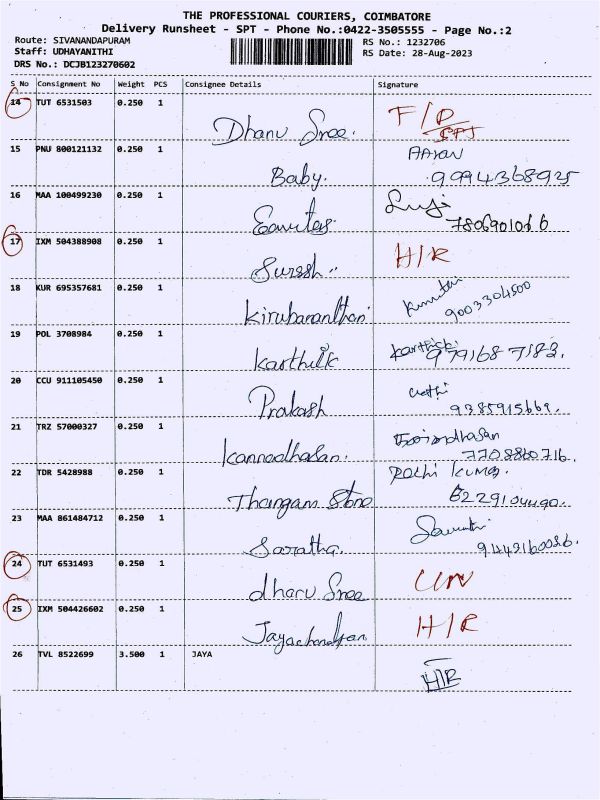 THE PROFESSIONAL COURIERS, COIMBATORE
Delivery Runsheet - SPT - Phone No.:0422-3505555 - Page No.:2
Route: SIVANANDAPURAM
Staff: UDHAYANITHI
DRS No.: DCJB123270602
RS No.: 1232706
RS Date: 28-Aug-2023
S No Consignment No Weight PCS Consignee Details Signature
14 TUT 6531503 0.250 1 Dhanu Sree. F/D
15 PNU 800121132 0.250 1 Baby. 9994368925
16 MAA 100499230 0.250 1
17 IXM 504388908 0.250 1 Suresh.. H/R
18 KUR 695357681 0.250 1 Kirubananthan 9003304500
19 POL 3708984 0.250 1 Karthik Karthick 9791687183.
20 CCU 911105450 0.250 1 Prakash 9385915669.
21 TRZ 57000327 0.250 1 Kannadhasan. 7708860716.
22 TDR 5428988 0.250 1 Thangam Store Kumar.
23 MAA 861484712 0.250 1 Saratha.
24 TUT 6531493 0.250 1 dhanu Sree
25 IXM 504426602 0.250 1 Jayachandran H/R
26 TVL 8522699 3.500 1 JAYA H/R